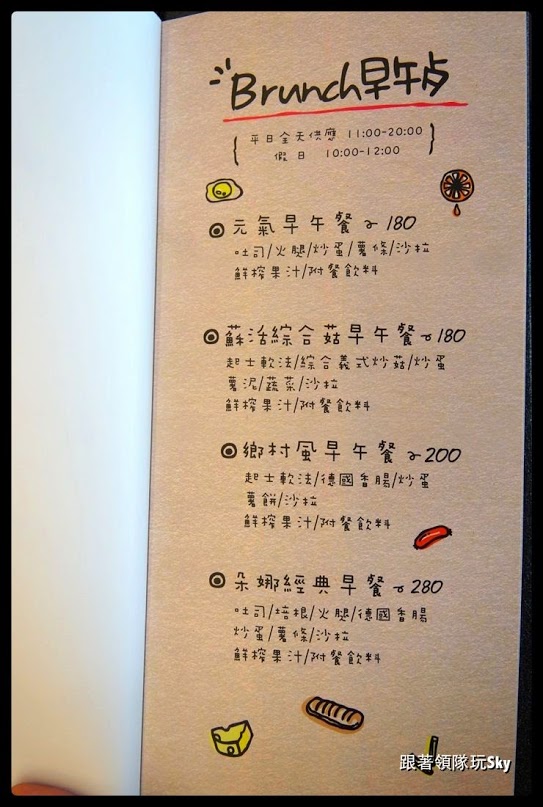 Brunch早午点
平日全天供應 11:00-20:00
假日 10:00-12:00
元氣早午餐~180
吐司/火腿/炒蛋/薯條/沙拉
鮮榨果汁/附餐飲料
蘇活綜合菇早午餐~180
起士軟法/綜合義式炒菇/炒蛋
薯泥/蔬菜/沙拉
鮮榨果汁/附餐飲料
鄉村風早午餐~200
起士軟法/德國香腸/炒蛋
薯餅/沙拉
鮮榨果汁/附餐飲料
朵娜經典早餐~280
吐司/培根/火腿/德國香腸
炒蛋/薯條/沙拉
鮮榨果汁/附餐飲料
跟著領隊玩Sky